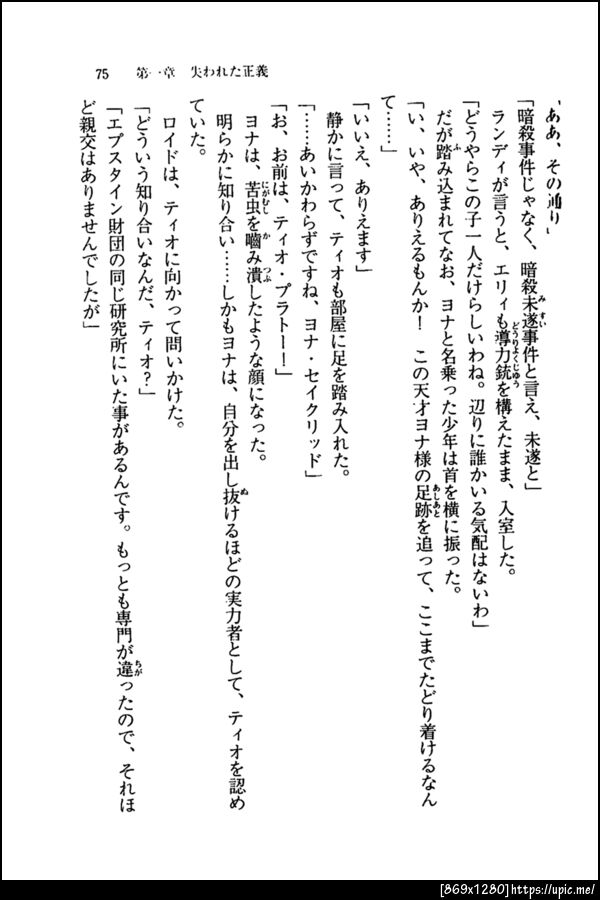 75　第一章　失われた正義
「ああ、その通り」
「暗殺事件じゃなく、暗殺未遂事件と言え、未遂と」
ランディが言うと、エリィも導力銃を構えたまま、入室した。
「どうやらこの子一人だけらしいわね。辺りに誰かいる気配はないわ」
だが踏み込まれてなお、ヨナと名乗った少年は首を横に振った。
「い、いや、ありえるもんか！　この天才ヨナ様の足跡を追って、ここまでたどり着けるなん
て……」
「いいえ、ありえます」
静かに言って、ティオも部屋に足を踏み入れた。
「……あいかわらずですね、ヨナ・セイクリッド」
「お、お前は、ティオ・プラトー！」
ヨナは、苦虫を嚙み潰したような顔になった。
明らかに知り合い……しかもヨナは、自分を出し抜けるほどの実力者として、ティオを認め
ていた。
ロイドは、ティオに向かって問いかけた。
「どういう知り合いなんだ、ティオ？」
「エプスタイン財団の同じ研究所にいた事があるんです。もっとも専門が違ったので、それほ
ど親交はありませんでしたが」
[869x1280]https://upic.me/